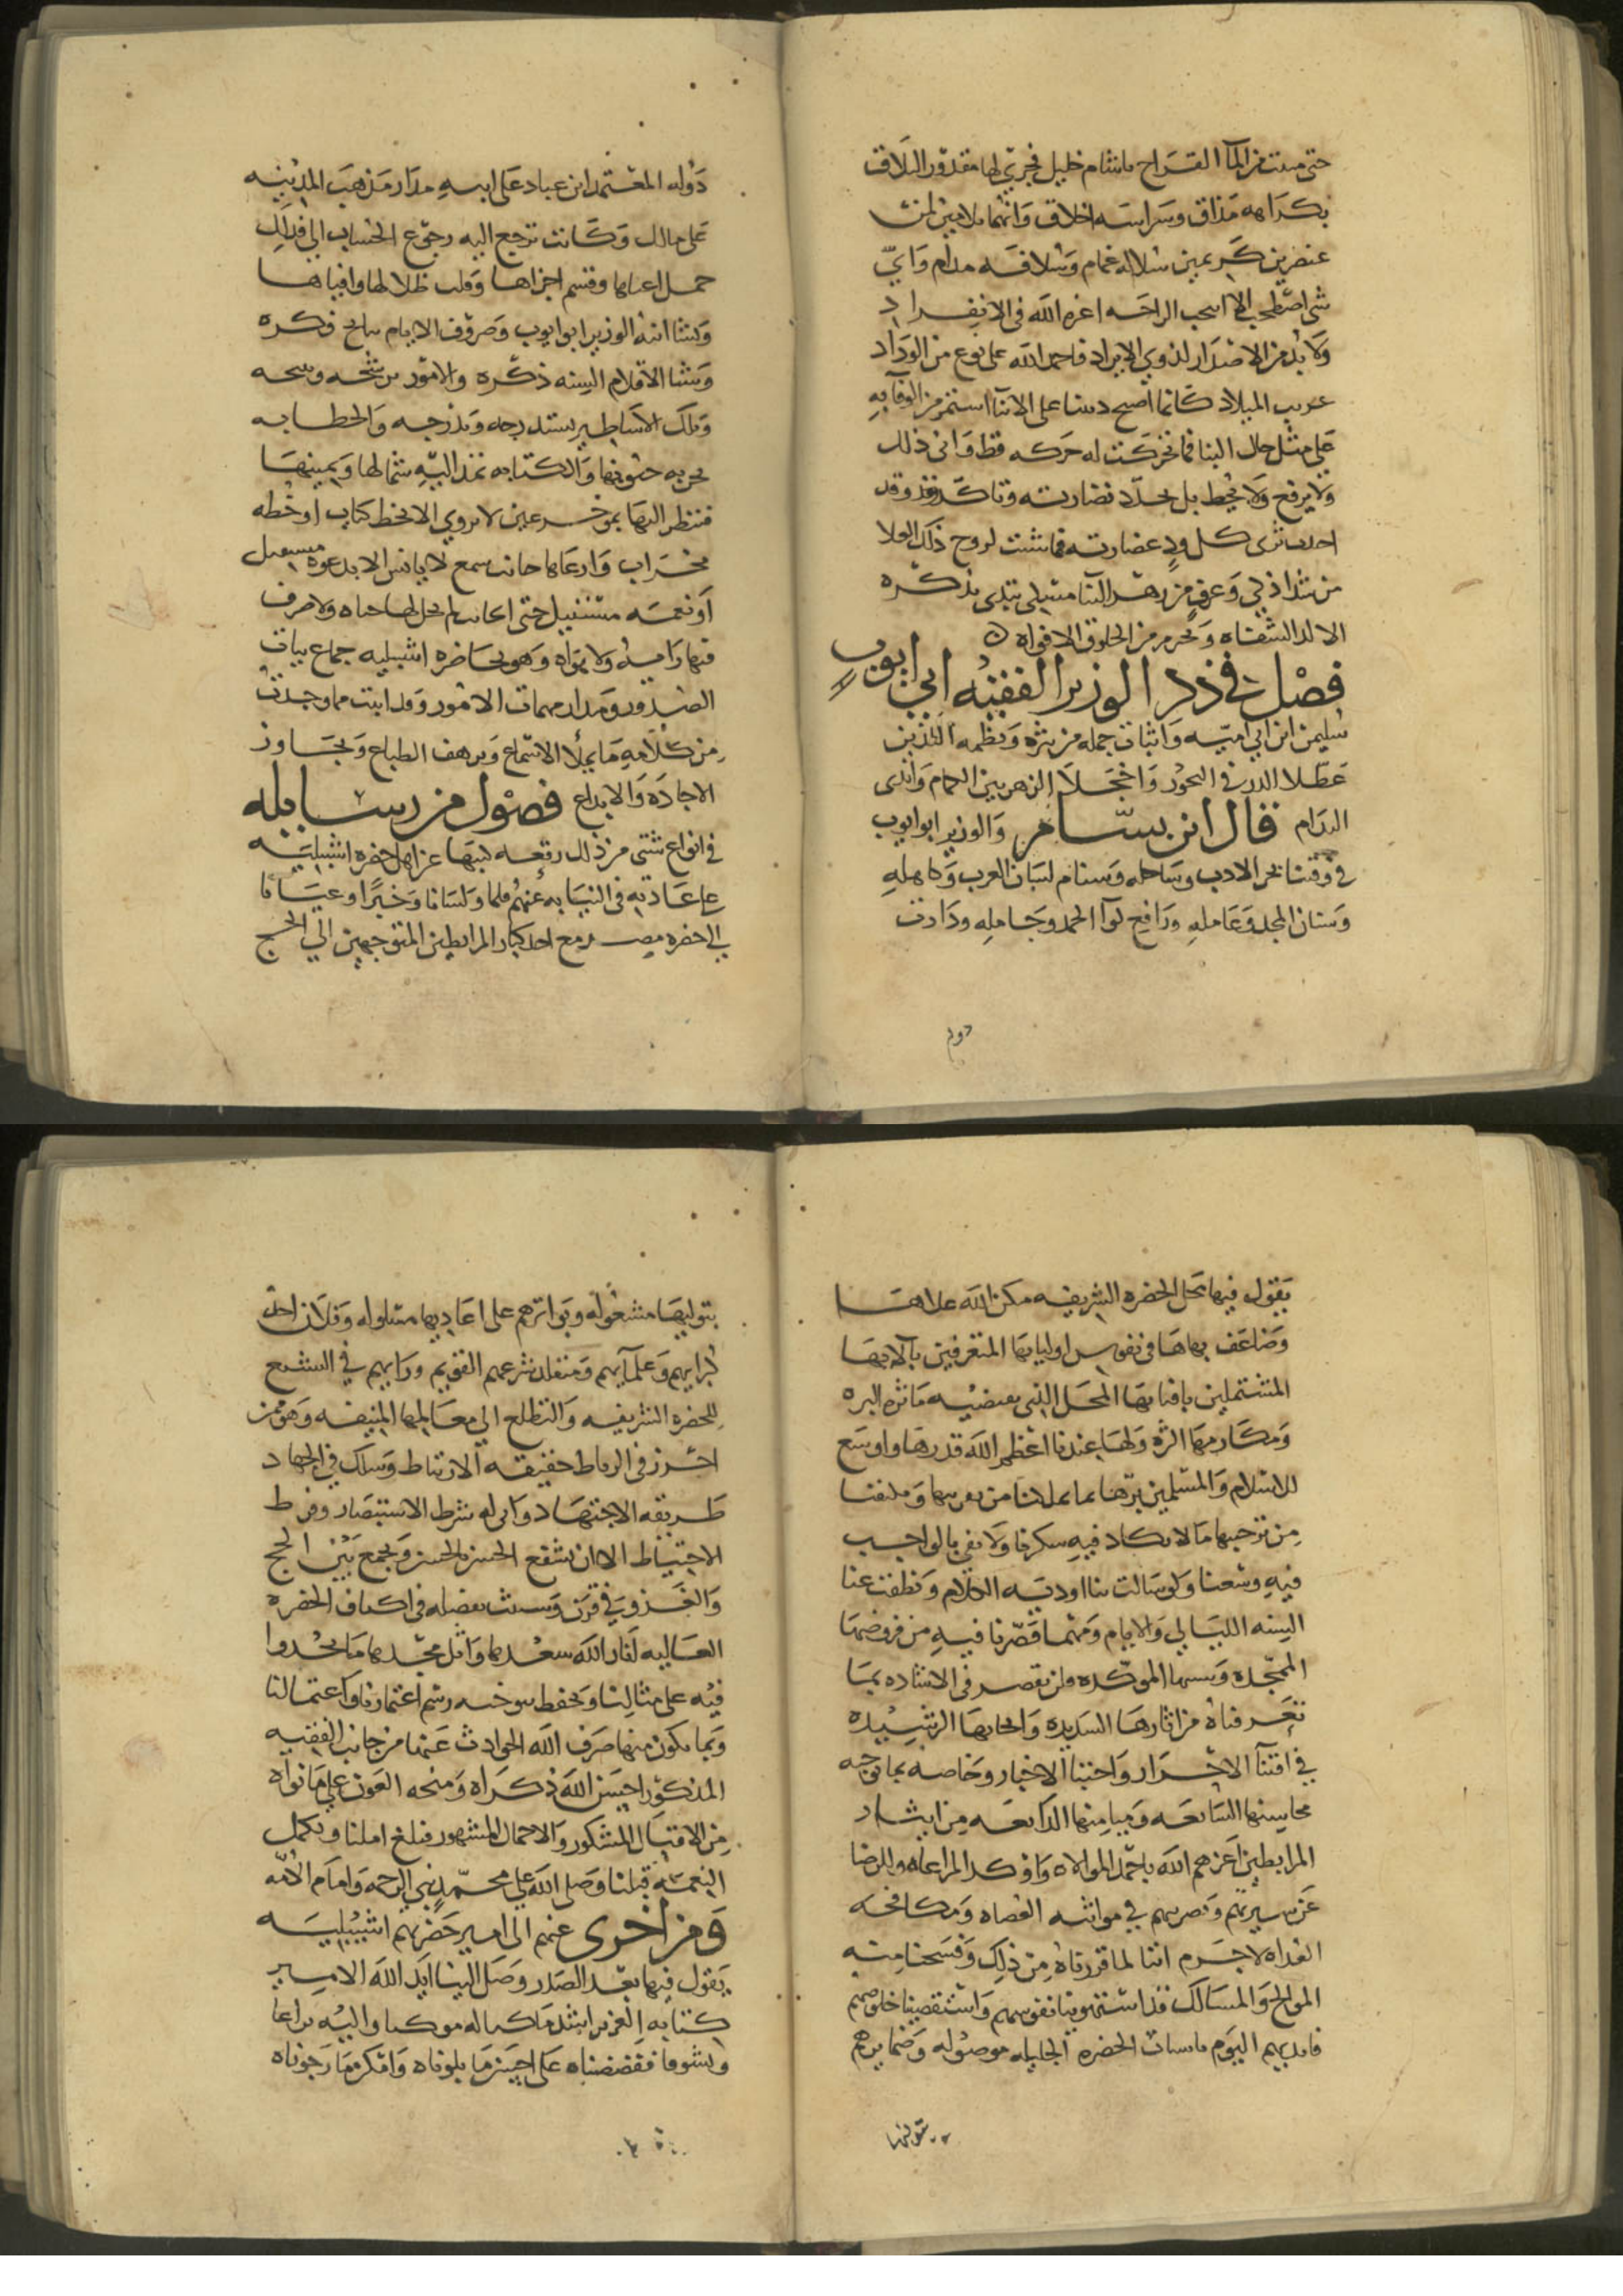 حتى مبتت من المآ القراح بانثام خليل فجري لها مقدور التلاق
بكراهه مذاق وشراسه اخلاق وانهما بلا مين لمن
عنصرين كريمين سلاله غمام وسلافه مدام وايّ
شي اصطحب الا اسحب الراحه اعزه الله في الانفراد
ولا بد من الاضدار لذوي الايراد فاحمد الله على نوع من الوداد
غريب الميلاد كانما اصبح دينا على الانآ استمر من الوفا به
على مثل حال البنا فما تحركت له حركه قط واني ذلك
ولا يرفع ولا يحط بل تجدد نضارته وتاكد وقد
احدب ثرى كل ود غضارته فما شئت لروح ذلك الولا
من شذا ذكي وعرف من زهر الثنا متبلي بذكره
الا لد الشفاه وتحرم من الخلوق الافواه
فصل في ذكر الوزير الفقيه ابي ايوب
سليمن ابن ابي اميه واثبات جمله من نثره ونظمه اللذين
عطلا الدر في النحور واخجلا الزهر بين الكمام واندى
البدام قال ابن بسام والوزير ابو ايوب
في وقتنا بحر الادب وساحله وسنام لسان العرب وكاهله
وسنان المجد وعامله ورافع لوآ الحمد وحامله ودارت
دوله
دوله المعتمد ابن عباد على ابيه مدار مذهب المدينه
على مالك وكانت ترجع اليه رجوع الحساب الى فذلك
حمل اعباها وقسم اجزاها وقلب ظلالها وافياها
ونشا ابنه الوزير ابو ايوب وصروف الايام نتايج فكره
ومشا الاقلام السنه ذكره والامور من شحه وسحه
وملك الاساطير يستدرجه وتدرجه والخطابه
تجربه حتوفها والكتابه تمد اليه شمالها ويمينها
فنظر اليها بموخر عين لا يروي الا بخط كتاب او خطه
محراب وارعاها جانب سمع لا يانس الا بدعوه مستقيل
او نعمه مستنيل حتى اكانت لم تحل لها حياه ولا صرف
فيها رايه ولا نواه وهو بحاضره اشبيليه جماع بيات
الصدور ومدار مهمات الامور وقد اثبت مما وجدت
من كلامه ما يملا الاسماع ويرهف الطباع وتجاوز
الاجاده والابداع فصول من رسايله
في انواع شتى من ذلك رقعه كتبها عن اهل حضره اشبيليه
على عادته في النيابه عنهم قلما ولسانا وخبرا وعيانا
الى حضره مصر مع احد كبار المرابطين المتوجهين الى الحج
يقول فيها محل الحضره الشريفه مكن الله علاها
وضاعف بهاها في نفوس اوليايها المتعرفين بآلايها
المشتملين بافنايها المحل الذي يقتضيه ماثرها البره
ومكارمها الثره ولها عندنا اعظم الله قدرها واوسع
للاسلام والمسلمين برها بما يملانا من تقربها وملقنا
من ترحبها ما لا يكاد فيه شكرنا ولا نفي بالواجب
فيه وسعنا ولو سالت بنا اوديه الكلام ونطقت عنا
السنه الليالي والايام ومهما قصرنا فيه من فروضها
الممجده وسننها الموكده ولن نقصر في الاشاده بما
تعرفناه من اثارها السديده وانحايها الرشيده
في اقتنا الاحرار واجتبا الاخيار وخاصه بما توجبه
محاسنها الشايعه وميامنها الذايعه من ايثار
المرابطين اعزهم الله باحمد الموالاه واوكد المراعاه والرضا
عن سيرتهم ونصرتهم في مواثبه العصاه ومكافحه
العداه لا جرم اننا لما قررناه من ذلك وفسحنا منه
المواج والمسالك قد استهوينا نفوسهم واستنقصينا خلوصهم
فايديهم اليوم باسباب الحضره الجليله موصوله وضمايرهم
بتوليها
بتوليها مشغوله وبواترهم على اعاديها مسلوله وفلان احد
كبرايهم وعلمايهم ومتقلد شرعهم القويم ورايهم في التشيع
للحضره الشريفه والتطلع الى معالمها المنيفه وهو ممن
احرز في الرباط حقيقه الارتباط وسلك في الجهاد
طريقه الاجتهاد وابى له شرط الاستبصار وفرط
الاحتياط الا ان يشفع الحسن بالحسن ويجمع بين الحج
والغزو في قرن وسبث بفضله في اكناف الحضره
العاليه انار الله سعدها واثل مجدها ما يحدوا
فيه على مثالنا وتحفظ بتوخيه رسم اعتمارنا واعتمالنا
وبما يكون منها صرف الله الحوادث عنها من جانب الفقيه
المذكور احسن الله ذكراه ومنحه العون على ما نواه
من الاقبال المشكور والاحمال المشهور فبلغ املنا وتكمل
النعمه قبلنا وصلى الله على محمد نبي الرحمه وامام الامه
ومن اخرى عنهم الى امير حضرتهم اشبيليه
يقول فيها بعد الصدر وصل الينا ايد الله الامير
كتابه العزيز اشد ما كنا له موكفا واليه نزاعا
وتشوفا ففضضناه على احسن ما بلوناه وافكر ما رجوناه